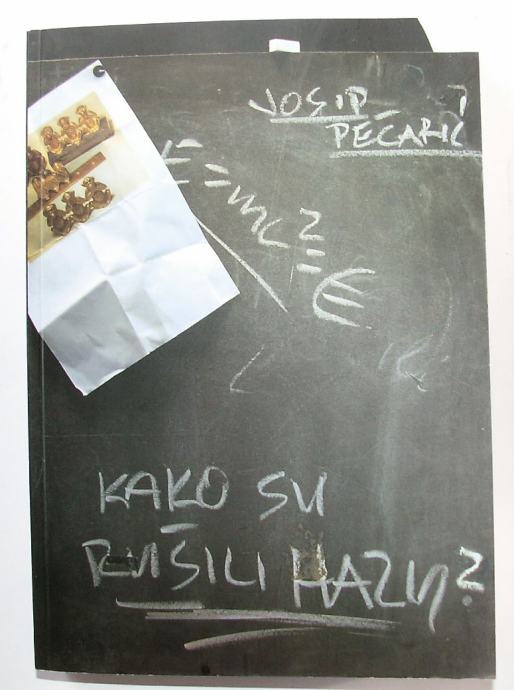 JOSIP
PEČARIĆ
E=mc²=€
KAKO SU
RUŠILI HAZU?